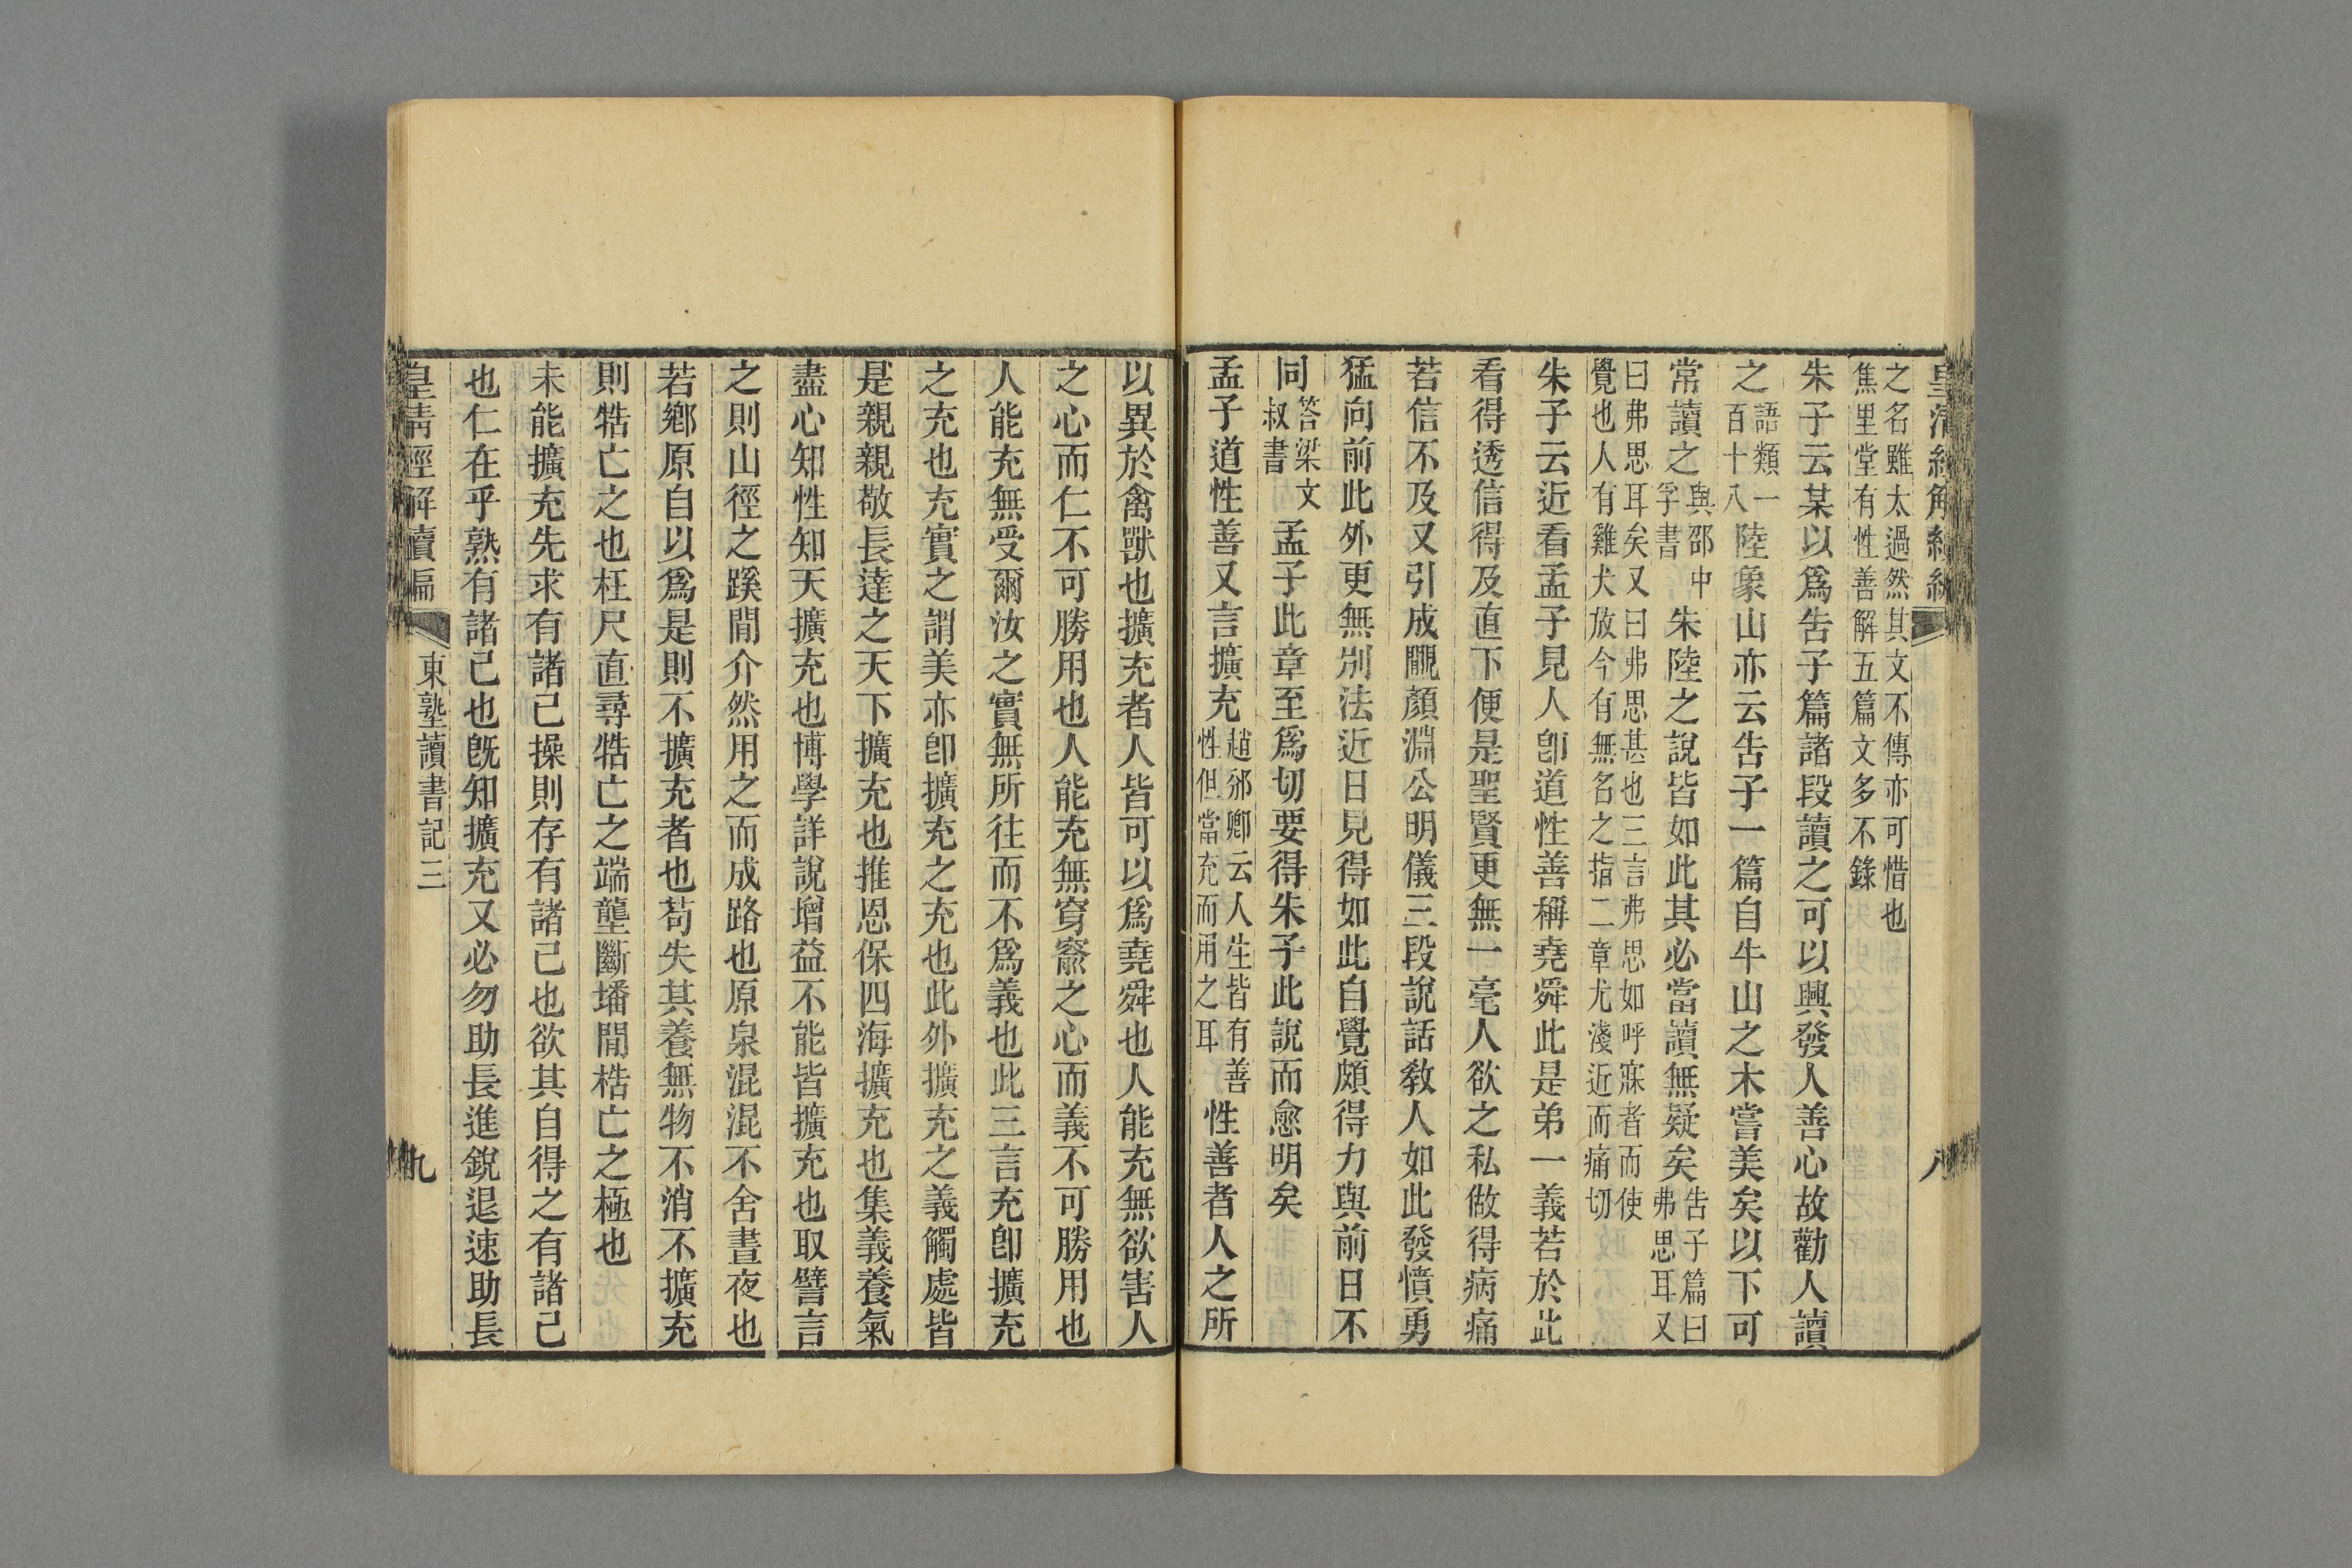 之名雖太過然其文不傳亦可惜也
焦里堂有性善解五篇文多不錄
朱子云某以爲告子篇諸段讀之可以興發人善心故勸人讀
之語類一百十八陸象山亦云告子一篇自牛山之木嘗美矣以下可
常讀之與邵中孚書朱陸之說皆如此其必當讀無疑矣告子篇曰弗思耳又
曰弗思耳矣又曰弗思甚也三言弗思如呼寐者而使
覺也人有雞犬放今有無名之指二章尤淺近而痛切
朱子云近看孟子見人卽道性善稱堯舜此是弟一義若於此
看得透信得及直下便是聖賢更無一毫人欲之私做得病痛
若信不及又引成覸顏淵公明儀三段說話敎人如此發憤勇
猛向前此外更無別法近日見得如此自覺頗得力與前日不
同答梁文叔書孟子此章至爲切要得朱子此說而愈明矣
孟子道性善又言擴充趙邠卿云人生皆有善性但當充而用之耳性善者人之所
以異於禽獸也擴充者人皆可以爲堯舜也人能充無欲害人
之心而仁不可勝用也人能充無穿窬之心而義不可勝用也
人能充無受爾汝之實無所往而不爲義也此三言充卽擴充
之充也充實之謂美亦卽擴充之充也此外擴充之義觸處皆
是親親敬長達之天下擴充也推恩保四海擴充也集義養氣
盡心知性知天擴充也博學詳說增益不能皆擴充也取譬言
之則山徑之蹊閒介然用之而成路也原泉混混不舍晝夜也
若鄉原自以爲是則不擴充者也苟失其養無物不消不擴充
則牿亡之也枉尺直尋牿亡之端壟斷墦閒梏亡之極也
未能擴充先求有諸己操則存有諸己也欲其自得之有諸己
也仁在乎熟有諸己也旣知擴充又必勿助長進銳退速助長
皇淸經解續編 東塾讀書記三 九